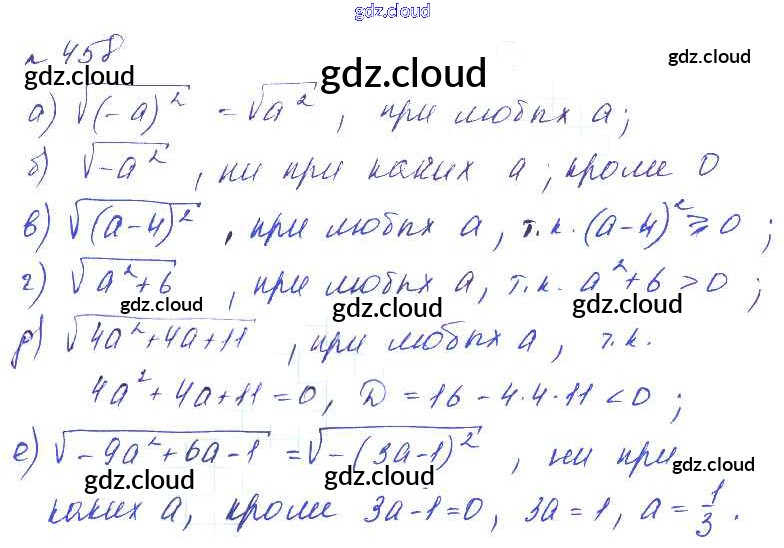 gdz.cloud
№ 458
gdz.cloud gdz.cloud gdz.cloud
а) √(-a)² = √a², при любых a;
gdz.cloud
б) √-a², ни при каких a; кроме 0
в) √(a-4)², при любых a, т.к. (a-4)² ⩾ 0;
г) √a²+6, при любых a, т.к. a²+6 > 0;
gdz.cloud gdz.cloud gdz.cloud
д) √4a²+4a+11, при любых a, т.к.
4a²+4a+11=0, D = 16 - 4·4·11 < 0;
е) √-9a²+6a-1 = √-(3a-1)², ни при
gdz.cloud gdz.cloud gdz.cloud
каких a, кроме 3a-1=0, 3a=1, a = 1/3.